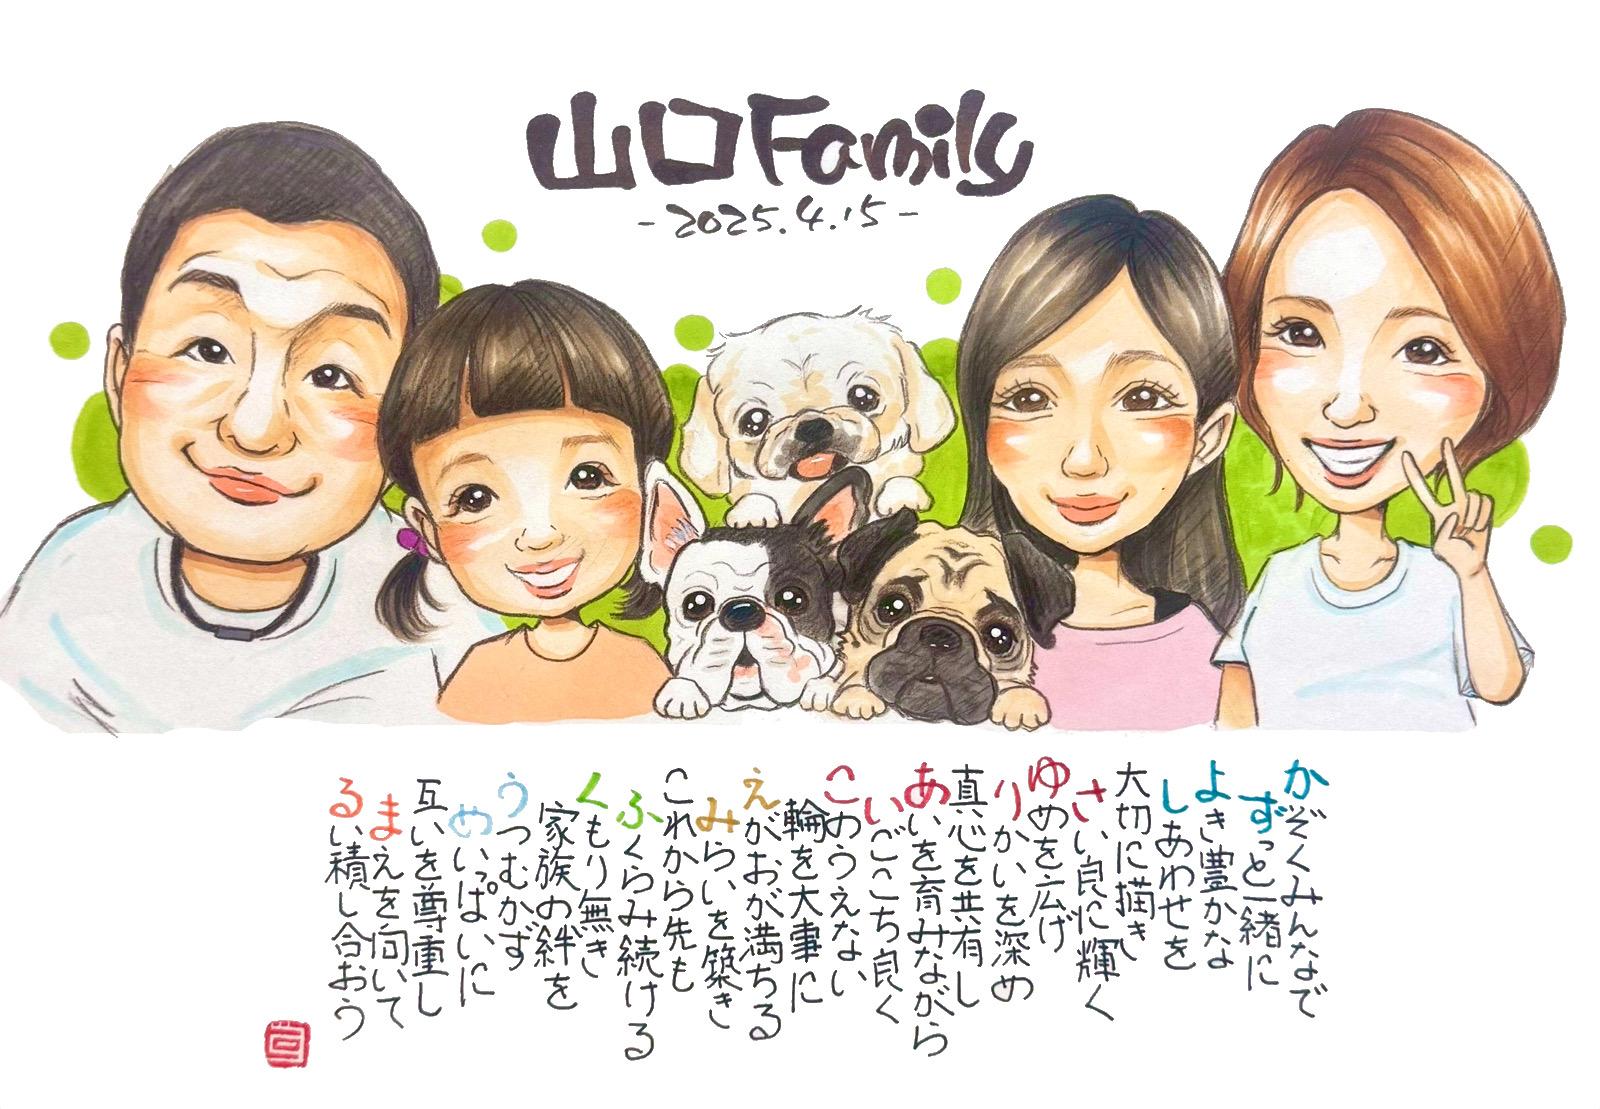 山口Family
-2025.4.15-
かぞくみんなで
ずっと一緒に
よき豊かな
しあわせを
大切に描き
さい良に輝く
ゆめを広げ
りかいを深め
真心を共有し
あいを育みながら
いごこち良く
このうえない
輪を大事に
えがおが満ちる
みらいを築き
これから先も
ふくらみ続ける
くもり無き
家族の絆を
うつむかず
めいっぱいに
互いを尊重し
まえを向いて
るい積し合おう